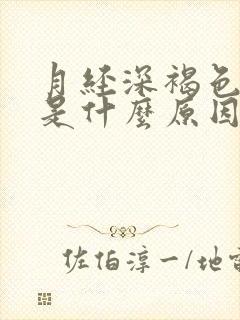 月经深褐色
是什麼原因
佐伯淳一/地